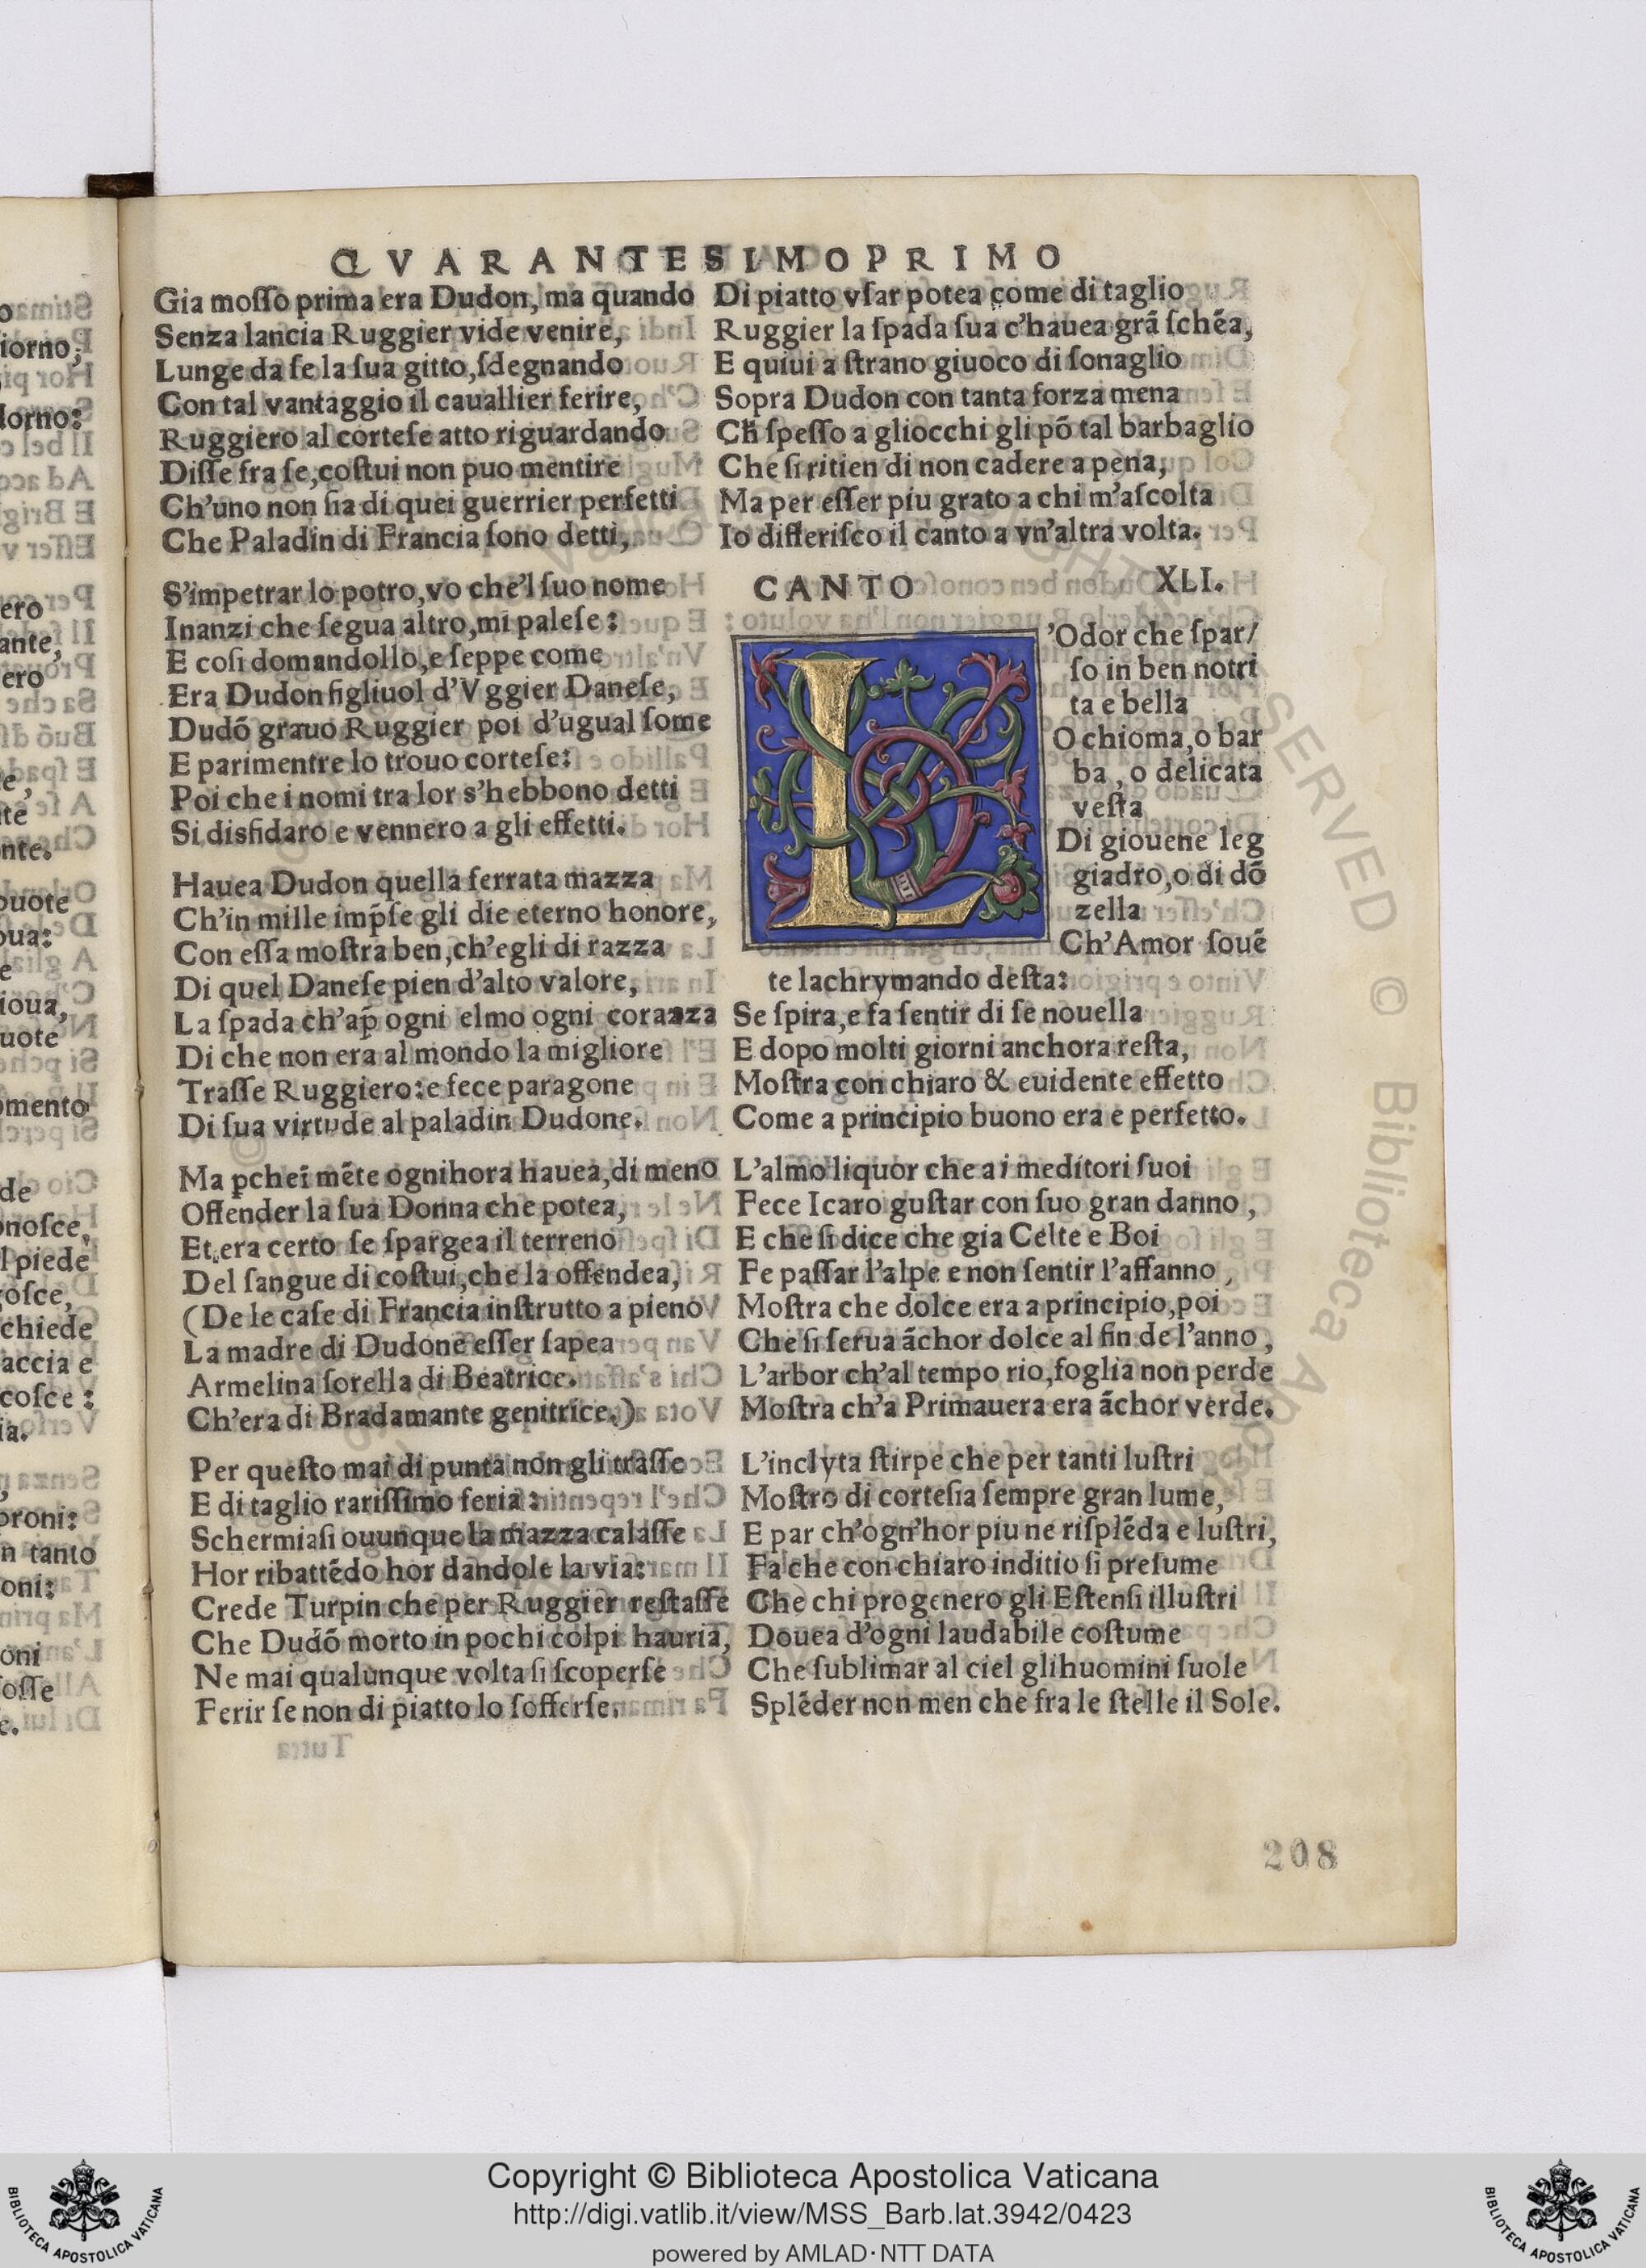 QVARANTESIMOPRIMO
Gia moſſo prima era Dudon, ma quando
Senza lancia Ruggier vide venire,
Lunge da ſe la ſua gitto, ſdegnando
Con tal vantaggio il cauallier ferire,
Ruggiero al corteſe atto riguardando
Diſſe fra ſe, coſtui non puo mentire
Ch'uno non ſia di quei guerrier perfetti
Che Paladin di Francia ſono detti,
S'impetrar lo potro, vo che'l ſuo nome
Inanzi che ſegua altro, mi paleſe:
E coſi domandollo, e ſeppe come
Era Dudon figliuol d'Vggier Daneſe,
Dudõ grauo Ruggier poi d'ugual ſome
E parimentre lo trouo corteſe:
Poi che i nomi tra lor s'hebbono detti
Si disfidaro e vennero a gli effetti.
Hauea Dudon quella ferrata mazza
Ch'in mille imp̃ſe gli die eterno honore,
Con eſſa moſtra ben, ch'egli di razza
Di quel Daneſe pien d'alto valore,
La ſpada ch'ap̃ ogni elmo ogni coraaza
Di che non era al mondo la migliore
Traſſe Ruggiero: e fece paragone
Di ſua virtude al paladin Dudone.
Ma ꝑchei mẽte ognihora hauea, di meno
Offender la ſua Donna che potea,
Et era certo ſe ſpargea il terreno
Del ſangue di coſtui, che la offendea,
(De le caſe di Francia inſtrutto a pieno
La madre di Dudone eſſer ſapea
Armelina ſorella di Beatrice.
Ch'era di Bradamante genitrice.)
Per queſto mai di punta non gli traſſe
E di taglio rariſſimo feria:
Schermiaſi ouunque la mazza calaſſe
Hor ribattẽdo hor dandole la via:
Crede Turpin che per Ruggier reſtaſſe
Che Dudõ morto in pochi colpi hauria,
Ne mai qualunque volta ſi ſcoperſe
Ferir ſe non di piatto lo ſofferſe.
Di piatto vſar potea come di taglio
Ruggier la ſpada ſua c'hauea grã ſchẽa,
E quiui a ſtrano giuoco di ſonaglio
Sopra Dudon con tanta forza mena
Ch̃ ſpeſſo a gliocchi gli põ tal barbaglio
Che ſi ritien di non cadere a pena,
Ma per eſſer piu grato a chi m'aſcolta
Io differiſco il canto a vn'altra volta.
CANTO XLI.
L'Odor che ſpar/
ſo in ben notri
ta e bella
O chioma, o bar
ba, o delicata
veſta
Di giouene leg
giadro, o di dõ
zella
Ch'Amor ſouẽ
te lachrymando deſta:
Se ſpira, e fa ſentir di ſe nouella
E dopo molti giorni anchora reſta,
Moſtra con chiaro & euidente effetto
Come a principio buono era e perfetto.
L'almo liquor che a i meditori ſuoi
Fece Icaro guſtar con ſuo gran danno,
E che ſi dice che gia Celte e Boi
Fe paſſar l'alpe e non ſentir l'affanno,
Moſtra che dolce era a principio, poi
Che ſi ſerua ãchor dolce al fin de l'anno,
L'arbor ch'al tempo rio, foglia non perde
Moſtra ch'a Primauera era ãchor verde.
L'inclyta ſtirpe che per tanti luſtri
Moſtro di corteſia ſempre gran lume,
E par ch'ogn'hor piu ne riſplẽda e luſtri,
Fa che con chiaro inditio ſi preſume
Che chi progenero gli Eſtenſi illuſtri
Douea d'ogni laudabile coſtume
Che ſublimar al ciel glihuomini ſuole
Splẽder non men che fra le ſtelle il Sole.
208
Copyright © Biblioteca Apostolica Vaticana
http://digi.vatlib.it/view/MSS_Barb.lat.3942/0423
powered by AMLAD·NTT DATA
BIBLIOTECA APOSTOLICA VATICANA
BIBLIOTECA APOSTOLICA VATICANA